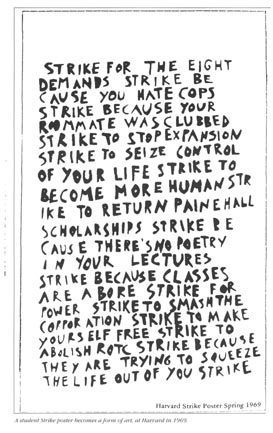 STRIKE FOR THE EIGHT
DEMANDS STRIKE BE
CAUSE YOU HATE COPS
STRIKE BECAUSE YOUR
ROOMMATE WAS CLUBBED
STRIKE TO STOP EXPANSION
STRIKE TO SEIZE CONTROL
OF YOUR LIFE STRIKE TO
BECOME MORE HUMAN STR
IKE TO RETURN PAINEHALL
SCHOLARSHIPS STRIKE BE
CAUSE THERE'S NO POETRY
IN YOUR LECTURES
STRIKE BECAUSE CLASSES
ARE A BORE STRIKE FOR
POWER STRIKE TO SMASH THE
CORPORATION STRIKE TO MAKE
YOURSELF FREE STRIKE TO
ABOLISH ROTC STRIKE BECAUSE
THEY ARE TRYING TO SQUEEZE
THE LIFE OUT OF YOU STRIKE
Harvard Strike Poster Spring 1969
A student Strike poster becomes a form of art, at Harvard in 1969.